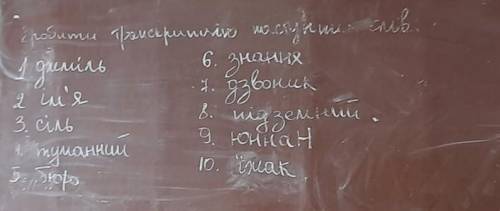 Зробити транскрипцію наступних слів.
1 джміль
2 ім'я
3. сіль
4. туманний
5. бюро
6. знання
7. дзвоник
8. підземний.
9. юннат
10. їжак.